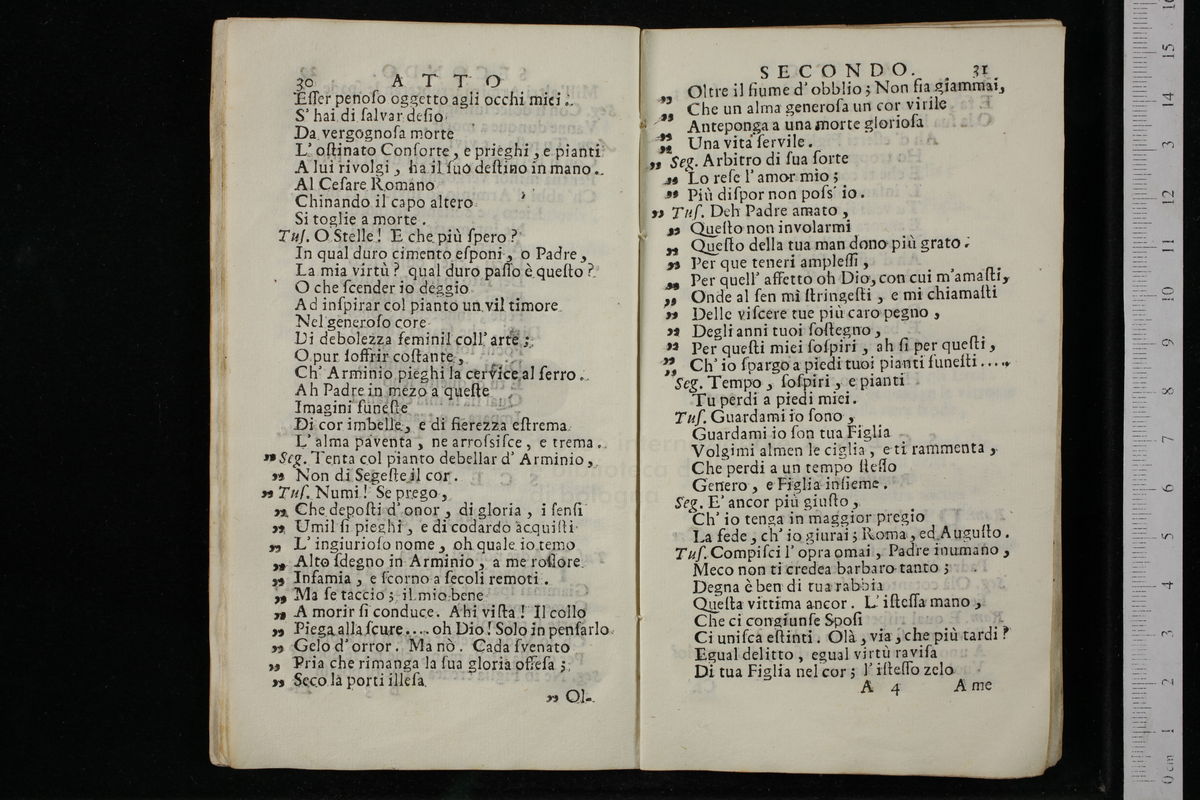 30 ATTO
Eſſer penoſo oggetto agli occhi miei:.
S' hai di ſalvar deſio
Da vergognoſa morte
L' oſtinato Conſorte, e prieghi, e pianti
A lui rivolgi, ha il ſuo deſtino in mano.
Al Ceſare Romano
Chinando il capo altero
Si toglie a morte.
Tuſ. O Stelle! E che più ſpero?
In qual duro cimento eſponi, o Padre,
La mia virtù? qual duro paſſo è queſto?
O che ſcender io deggio
Ad inſpirar col pianto un vil timore
Nel generoſo core
Di debolezza feminil coll' arte;
O pur ſoffrir coſtante,
Ch' Arminio pieghi la cervice al ferro.
Ah Padre in mezo a queſte
Imagini funeſte
Di cor imbelle, e di fierezza eſtrema
L' alma paventa, ne arroſsiſce, e trema.
„ Seg. Tenta col pianto debellar d' Arminio,
„ Non di Segeſte il cor.
„ Tuſ. Numi! Se prego,
„ Che depoſti d' onor, di gloria, i ſenſi
„ Umil ſi pieghi, e di codardo acquiſti
„ L' ingiurioſo nome, oh quale io temo
„ Alto ſdegno in Arminio, a me roſſore
„ Infamia, e ſcorno a ſecoli remoti.
„ Ma ſe taccio; il mio bene
„ A morir ſi conduce. Ahi viſta! Il collo
„ Piega alla ſcure.... oh Dio! Solo in penſarlo
„ Gelo d' orror. Ma nò. Cada ſvenato
„ Pria che rimanga la ſua gloria offeſa;
„ Seco la porti illeſa
„ Ol-
SECONDO. 31
„ Oltre il fiume d' obblio; Non fia giammai,
„ Che un alma generoſa un cor virile
„ Anteponga a una morte glorioſa
„ Una vita ſervile.
„ Seg. Arbitro di ſua ſorte
„ Lo reſe l' amor mio;
„ Più diſpor non poſs' io.
„ Tuſ. Deh Padre amato,
„ Queſto non involarmi
„ Queſto della tua man dono più grato.
„ Per que teneri ampleſſi,
„ Per quell' affetto oh Dio, con cui m'amaſti,
„ Onde al ſen mi ſtringeſti, e mi chiamaſti
„ Delle viſcere tue più caro pegno,
„ Degli anni tuoi ſoſtegno,
„ Per queſti miei ſoſpiri, ah ſi per queſti,
„ Ch' io ſpargo a piedi tuoi pianti funeſti....
Seg. Tempo, ſoſpiri, e pianti
Tu perdi a piedi miei.
Tuſ. Guardami io ſono,
Guardami io ſon tua Figlia
Volgimi almen le ciglia, e ti rammenta,
Che perdi a un tempo ſteſſo
Genero, e Figlia inſieme.
Seg. E' ancor più giuſto,
Ch' io tenga in maggior pregio
La fede, ch' io giurai; Roma, ed Auguſto.
Tuſ. Compiſci l' opra omai, Padre inumano,
Meco non ti credea barbaro tanto;
Degna è ben di tua rabbia
Queſta vittima ancor. L' iſteſſa mano,
Che ci congiunſe Spoſi
Ci uniſca eſtinti. Olà, via, che più tardi?
Egual delitto, egual virtù raviſa
Di tua Figlia nel cor; l' iſteſſo zelo
A 4 A me